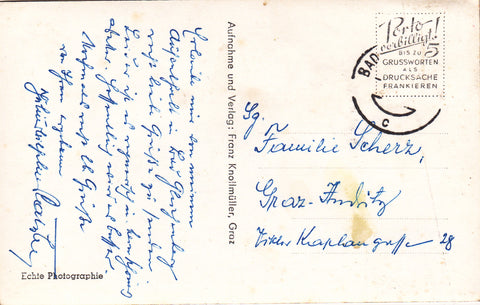 Erlaube mir von meinem
Aufenthalt in Bad Gleichenberg
recht liebe Grüße zu senden
Leider ist es regnerisch u. kein schönes
Wetter. Hoffentlich wird es besser.
Nochmals recht lb. Grüße
von Ihrem ergebenen
Aufnahme und Verlag: Franz Knollmüller, Graz
Echte Photographie
Porto
verbilligt!
BIS ZU
5
GRUSSWORTEN
ALS
DRUCKSACHE
FRANKIEREN
BAD
c
Sg.
Familie Scherz,
Graz-Andritz
Viktor Kaplangasse 28